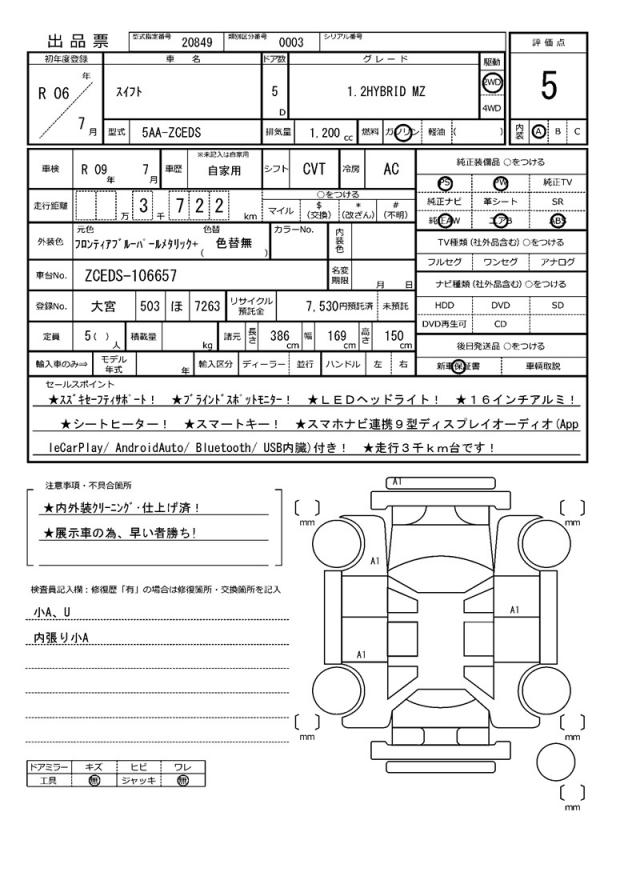 出品票 型式指定番号 20849 類別区分番号 0003 シリアル番号
評価点
5
内装 A B C
初年度登録 車名 ドア数 グレード 駆動
R 06 年 7 月 スイフト 5 D 1.2HYBRID MZ 2WD 4WD
型式 5AA-ZCEDS 排気量 1.200 cc 燃料 ガソリン 軽油 ( )
車検 R 09 年 7 月 車歴 ※未記入は自家用 自家用 シフト CVT 冷房 AC
純正装備品 ○をつける
PS PW 純正TV
純正ナビ 革シート SR
純正AW エアB ABS
走行距離 万 3 千 7 2 2 km ○をつける
マイル $(交換) *(改ざん) #(不明)
外装色 元色 色替 フロンティアブルーパールメタリック+ ( 色替無 ) カラーNo. 内装色
TV種類(社外品含む)○をつける
フルセグ ワンセグ アナログ
車台No. ZCEDS-106657 名変期限 月 日
ナビ種類(社外品含む)○をつける
HDD DVD SD
DVD再生可 CD
登録No. 大宮 503 ほ 7263 リサイクル預託金 7,530円預託済 未預託
定員 5( ) 人 積載量 kg 諸元 長さ 386 cm 幅 169 cm 高さ 150 cm
後日発送品 ○をつける
新車保証書 車輌取説
輸入車のみ⇒ モデル年式 年 輸入区分 ディーラー 並行 ハンドル 左 右
セールスポイント
★スズキセーフティサポート! ★ブラインドスポットモニター! ★LEDヘッドライト! ★16インチアルミ!
★シートヒーター! ★スマートキー! ★スマホナビ連携9型ディスプレイオーディオ(App
leCarPlay/ AndroidAuto/ Bluetooth/ USB内臓)付き! ★走行3千km台です!
注意事項・不具合箇所
★内外装クリーニング・仕上げ済!
★展示車の為、早い者勝ち!
検査員記入欄:修復歴「有」の場合は修復箇所・交換箇所を記入
小A、U
内張り小A
ドアミラー キズ ヒビ ワレ
工具 無 ジャッキ 無
A1
[ ] mm
[ ] mm
A1
A1
A1
[ ] mm
[ ] mm
[ ] mm